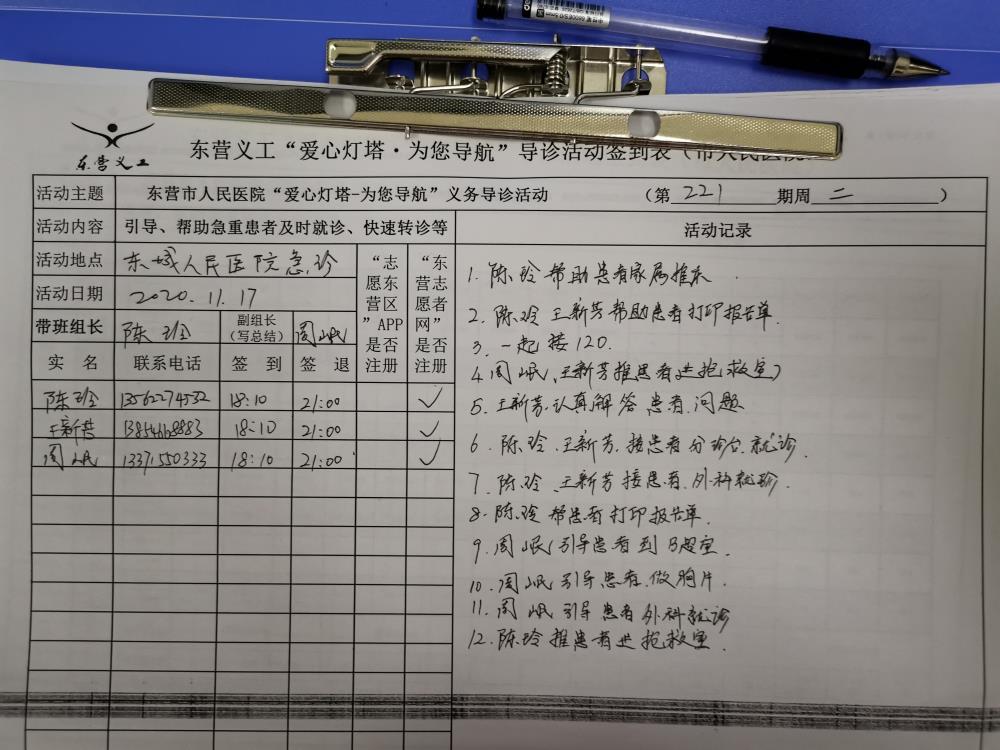 东营义工
东营义工“爱心灯塔·为您导航”导诊活动签到表（市人民医院
活动主题 东营市人民医院“爱心灯塔-为您导航”义务导诊活动 （第 221 期周 二 ）
活动内容 引导、帮助急重患者及时就诊、快速转诊等 活动记录
活动地点 东城人民医院急诊
活动日期 2020.11.17
带班组长 陈玲 副组长（写总结） 周岷
“志愿东营区”APP是否注册
“东营志愿者网”是否注册
实 名 联系电话 签 到 签 退
陈玲 13562274532 18:10 21:00 ✓
王新芳 18:10 21:00 ✓
周岷 13371550333 18:10 21:00 ✓
1. 陈玲帮助患者家属推床.
2. 陈玲 王新芳帮助患者打印报告单.
3. 一起接120.
4. 周岷、王新芳推患者进抢救室
5. 王新芳.认真解答患者.问题
6. 陈玲.王新芳.接患者分诊台.就诊.
7. 陈玲.王新芳接患者.外科就诊.
8. 陈玲帮患者打印报告单.
9. 周岷引导患者到B超室.
10. 周岷引导患者.做胸片.
11. 周岷引导患者外科就诊
12. 陈玲推患者进抢救室.